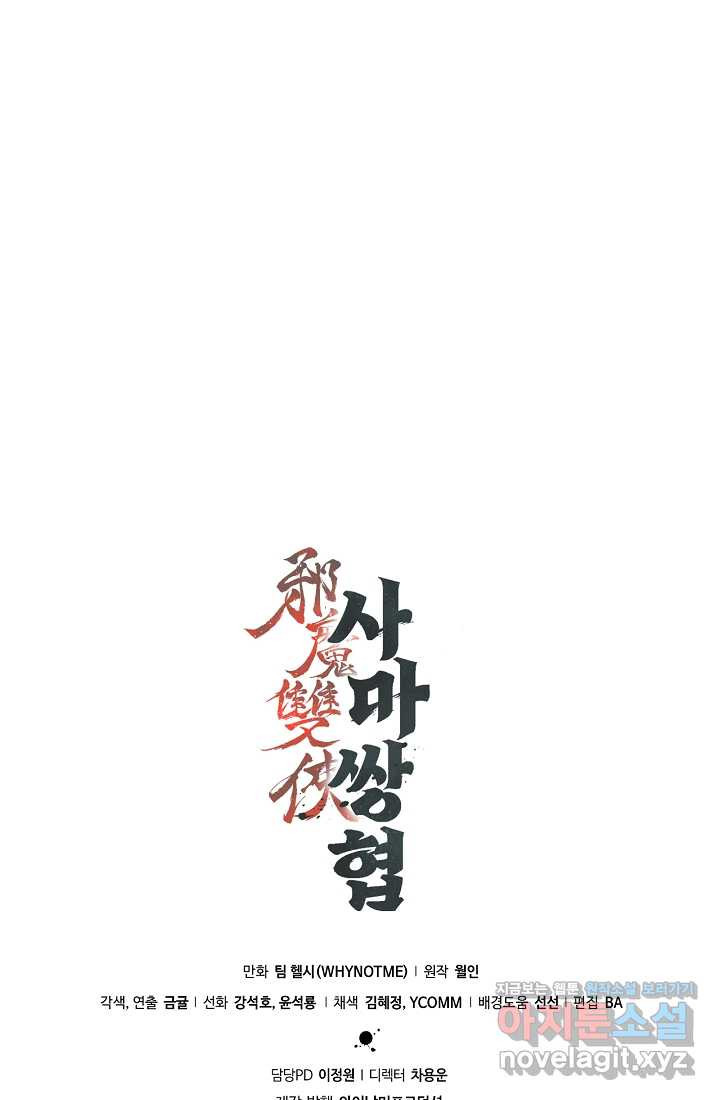 邪魔雙俠
사마쌍협
만화 팀 헬시(WHYNOTME) | 원작 월인
각색, 연출 금귤 | 선화 강석호, 윤석룡 | 채색 김혜정, YCOMM | 배경도움 선선 | 편집 BA
지금보는 웹툰 원작소설 보러가기
아지툰소설
novelagit.xyz
담당PD 이정원 | 디렉터 차용운